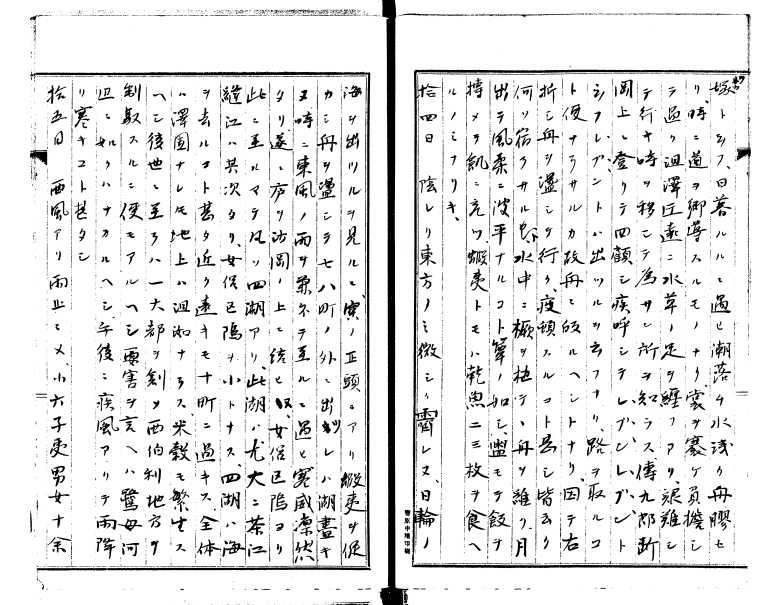 塚トシス、日暮ルルニ過ヒ潮落チ水浅ク舟膠セ
リ、時ニ道ヲ郷導スルモノナリ、裳ヲ褰ケ員擔シ
テ過ク沮澤丘遠ニ水草ノ足ヲ纏フアリ、艱難シ
テ行キ時ヲ移シテ為サン所ヲ知ラス傳九郎断
岡上ニ登リテ四顧シ疾呼シテレブンレブント
シフレブントハ出ツルヲ云フナリ、路ヲ取ルコ
ト便ナラサルカ故舟ニ皈ルヘントナリ、因テ右
折シ舟ヲ盪シテ行ク、疲頓スルコト甚シ皆云ク
何ソ宿ラサル水中ニ橛ヲ植テ舟ヲ維ク月
出テ風柔ニ波平ナルコト簟ノ如シ、盥モテ餃ヲ
摶メテ飢ニ充ツ、蝦夷トモハ乾魚二三枚ヲ食ヘ
ルノミナリキ、
拾四日 陰レリ東方ノミ微シク霽レヌ、日輪ノ
海ヲ出ツルヲ見ルニ寅ノ正頭ニアリ蝦夷ヲ促
カシ舟ヲ盪シテ七八町ノ外ニ出レハ湖盡キ
ヌ時ニ東風ノ雨ヲ兼ネテ至ルニ過ヒ寒威凛然
タリ遂ニ庐ヲ訪岡ノ上ニ結ヒ女倍瓦隖ヨリ
此ニ至ルマテ凡ソ四湖アリ、此湖ハ尤大ニ茶江
縫江ハ其次タリ、女倍瓦隖ヲ小トナス、四湖ハ海
ヲ去ルコト甚タ近ク遠キモ十町ニ過キス全体
ハ澤國ナレモ地上ハ沮洳ナラス、米穀モ繁生ス
ヘシ後世ニ至ラハ一大部ヲ創メ西伯利地方ヲ
制馭スルニ便モアルヘシ要害ヲ言ヘハ鷺毋河
辺ニ如クハナカルヘシ、午後ニ疾風アリテ雨降
リ寒キコト甚タシ
拾五日 西風アリ雨止ミメ、小六子吏男女十余